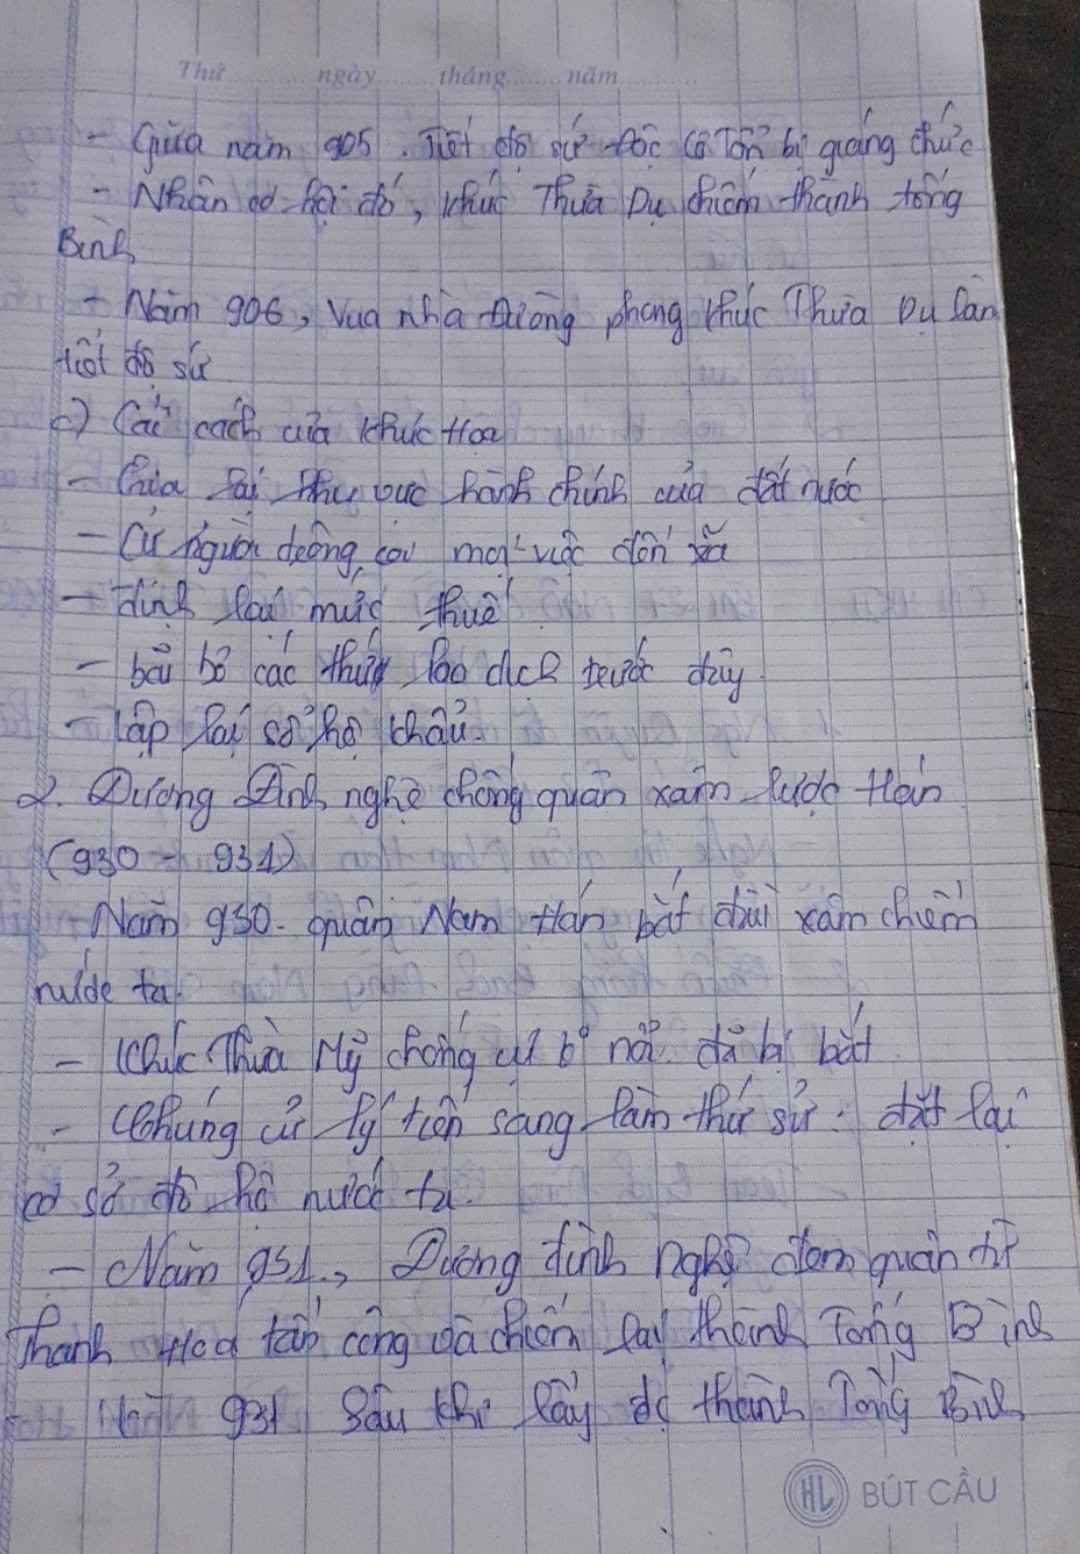 Thứ ngày tháng năm
- Giữa năm 905. Tiết độ sứ Độc Cô Tổn bị giáng chức
- Nhân cơ hội đó, Khúc Thừa Dụ chiếm thành tống
Bình
- Năm 906, Vua nhà Đường phong Khúc Thừa Dụ làm
tiết độ sứ
c) Cải cách của Khúc Hạo
- Chia lại khu vực hành chính của đất nước
- Cử người trông coi mọi việc đến xã
- định lại mức thuế
- bãi bỏ các thứ lao dịch trước đây
- Lập lại sổ hộ khẩu.
2. Dương Đình nghệ chống quân xâm lược Hán
(930 - 931)
Năm 930. quân Nam Hán bắt đầu xâm chiếm
nước ta.
- Khúc Thừa Mỹ chống cự bị nổi đã bị bắt
- Chúng cử Lý tiến sang làm thứ sử. đặt lại
cơ sở đô hộ nước ta.
- Năm 931, Dương đình Nghệ đem quân từ
Thanh Hoá tấn công và chiếm lại thành Tống Bình
931 Sau khi lấy đc thành Tống Bình
HL BÚT CẦU